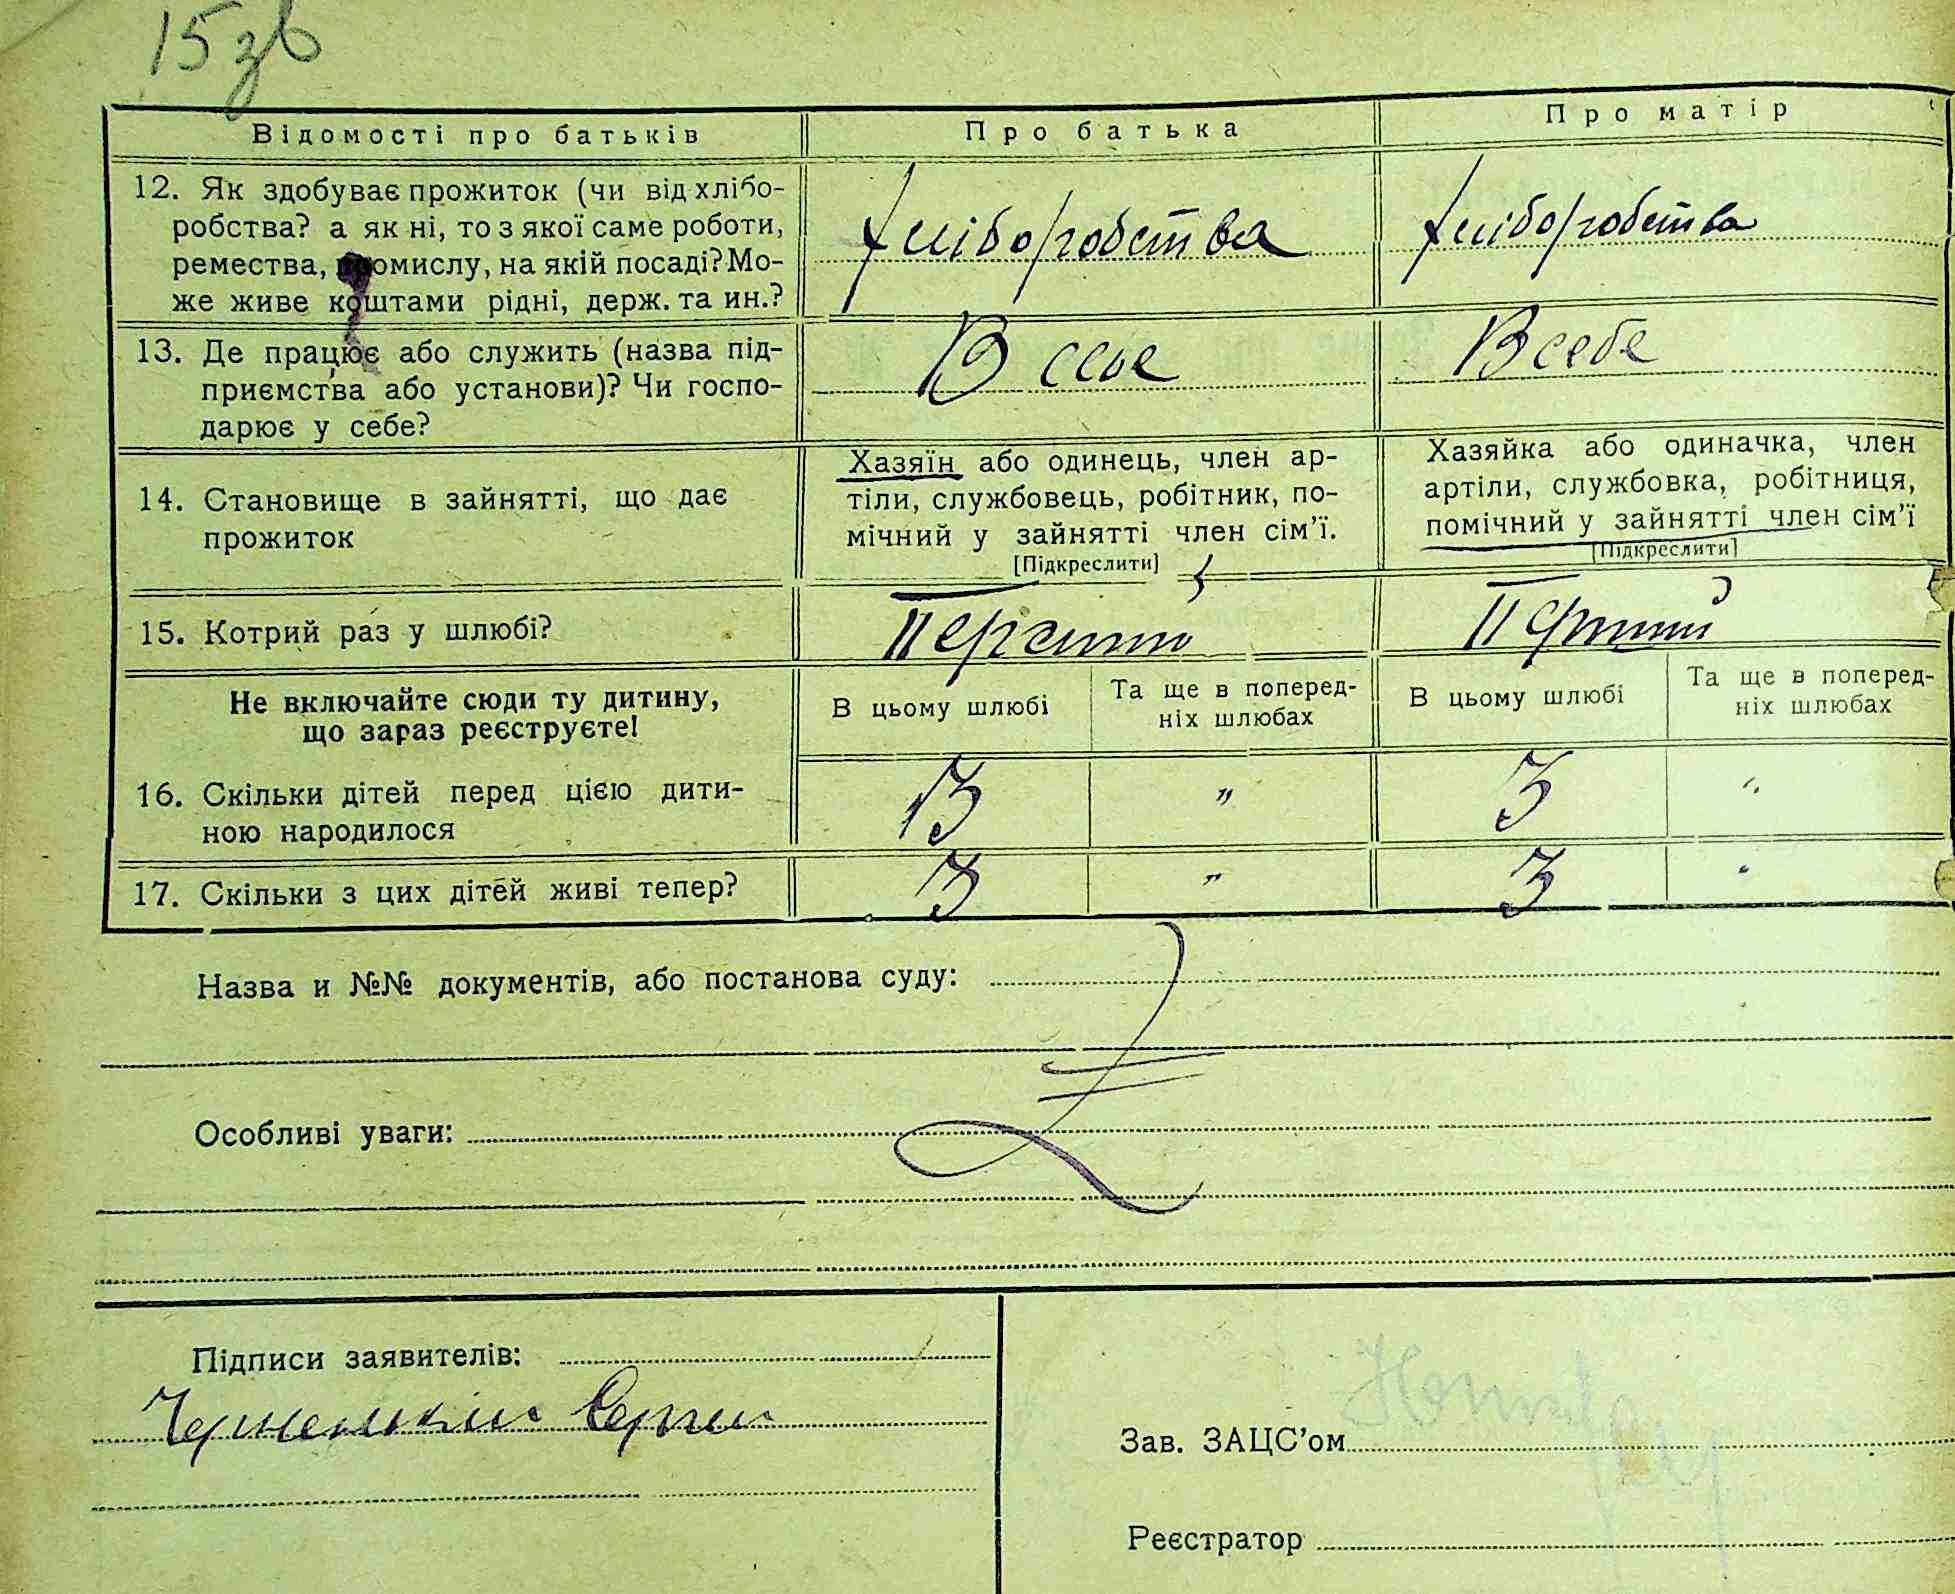 15 зв
Відомості про батьків Про батька Про матір
12. Як здобуває прожиток (чи від хлібо-
робства? а як ні, то з якої саме роботи,
ремества, промислу, на якій посаді? Мо-
же живе коштами рідні, держ. та ин.?
хліборобства хліборобства
13. Де працює або служить (назва під-
приємства або установи)? Чи госпо-
дарює у себе?
В себе В себе
14. Становище в зайнятті, що дає
прожиток
Хазяїн або одинець, член ар-
тіли, службовець, робітник, по-
мічний у зайнятті член сім'ї.
[Підкреслити]
Хазяйка або одиначка, член
артіли, службовка, робітниця,
помічний у зайнятті член сім'ї
[Підкреслити]
15. Котрий раз у шлюбі?
Не включайте сюди ту дитину,
що зараз реєструєте!
В цьому шлюбі
Та ще в поперед-
ніх шлюбах
В цьому шлюбі
Та ще в поперед-
ніх шлюбах
16. Скільки дітей перед цією дити-
ною народилося
3 " 3 "
17. Скільки з цих дітей живі тепер?
3 " 3 "
Назва и №№ документів, або постанова суду:
Особливі уваги:
Підписи заявителів:
Зав. ЗАЦС'ом
Реєстратор